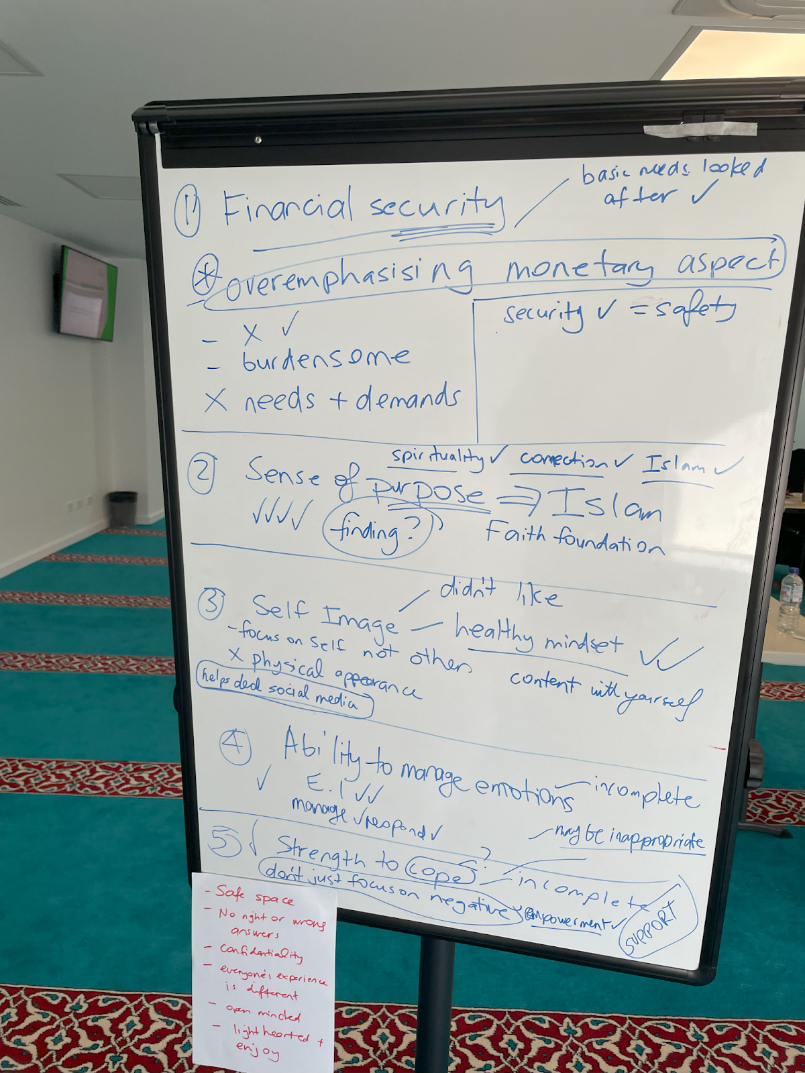 ① Financial security
basic needs looked
after ✓
* overemphasising monetary aspect
- X ✓
- burdensome
X needs + demands
security ✓ = safety
② Sense of purpose ⇒ Islam
spirituality ✓ connection ✓ Islam ✓
✓✓✓✓ finding?
Faith foundation
③ Self Image
didn't like
healthy mindset ✓✓
- focus on self not others
X physical appearance
content with yourself
helps deal social media
④ Ability to manage emotions
incomplete
✓ E.I ✓✓
manage ✓ respond ✓
may be inappropriate
⑤ Strength to cope ?
incomplete
don't just focus on negative
empowerment ✓
SUPPORT
- Safe space
- No right or wrong
answers
- Confidentiality
- everyone's experience
is different
- open minded
- light hearted +
enjoy